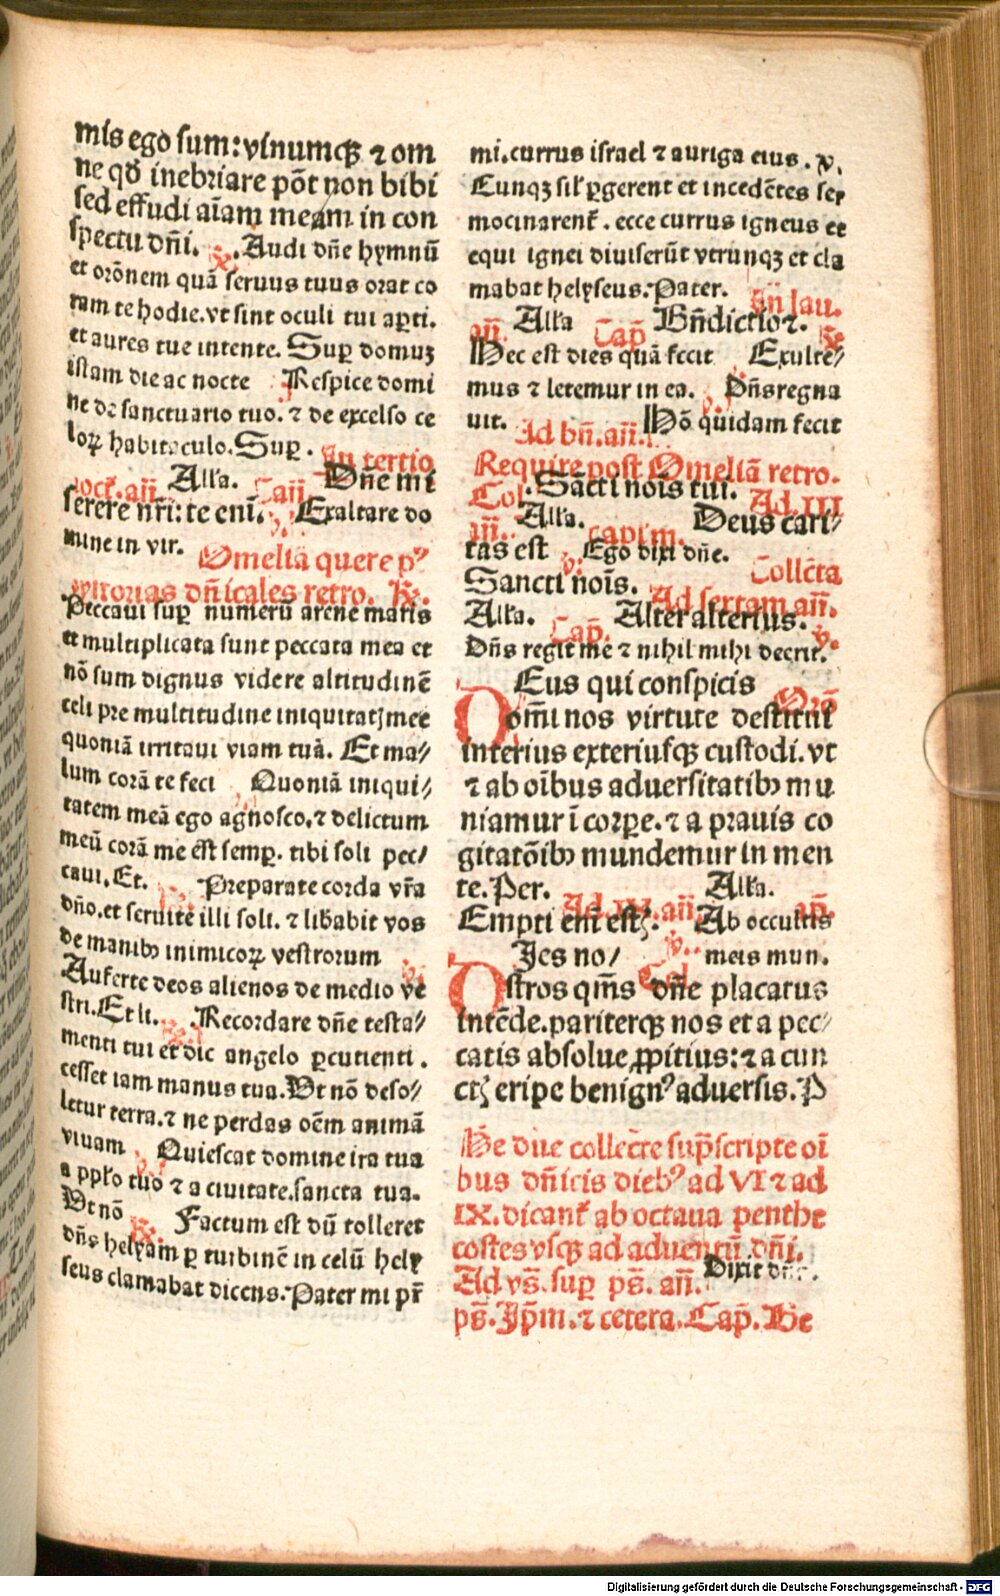 mis ego sum: vinumqꝫ ⁊ om
ne qď inebriare põt non bibi
sed effudi aĩam meam in con
spectu dñi. ꝶ. Audi dñe hymnũ
et orõnem quã seruus tuus orat co
ram te hodie. vt sint oculi tui aꝑti.
et aures tue intente. Suꝑ domuꝫ
istam die ac nocte ℣ Respice domi
ne de sanctuario tuo. ⁊ de excelso ce
loꝝ habitaculo. Suꝑ. In tertio
noct̃. añ Alla. Cañ Dñe mi
serere nr̃i: te eni. Exaltare do
mine in vir. Omeliã quere pꝰ
ystorias dñicales retro. ꝶ.
Peccaui suꝑ numerũ arene maris
et multiplicata sunt peccata mea et
nõ sum dignus videre altitudinẽ
celi pre multitudine iniquitatꝭ mee
quoniã irritaui viam tuã. Et ma/
lum corã te feci ℣ Quoniã iniqui/
tatem meã ego agnosco. ⁊ delictum
meũ corã me est semꝑ. tibi soli pec/
caui. Et. ꝶ. Preparate corda vr̃a
dño. et seruite illi soli. ⁊ libabit vos
de manibꝰ inimicoꝝ vestrorum ℣
Auferte deos alienos de medio ve
stri. Et li. ꝶ. Recordare dñe testa/
menti tui et dic angelo ꝑcutienti.
cesset iam manus tua. Vt nõ deso/
letur terra. ⁊ ne perdas oẽm animã
viuam ℣ Quiescat domine ira tua
a pplo tuo ⁊ a ciuitate. sancta tua.
Vt nõ ꝶ. Factum est dũ tolleret
dñs helyam ꝑ turbinẽ in celũ hely
seus clamabat dicens. Pater mi pr̃
mi. currus israel ⁊ auriga eius. ℣.
Cunqꝫ sil ꝑgerent et incedẽtes ser
mocinarent̃. ecce currus igneus et
equi ignei diuiserũt vtrunqꝫ et cla
mabat helyseus. Pater. In lau.
añ. Alla Cap̃ Bñdictio⁊. ꝶ
Hec est dies quã fecit Exulte/
mus ⁊ letemur in ea. ℣. Dñs regna
uit. Ad bñ. añ. Hõ quidam fecit
Require post Omeliã retro.
Col. Sãcti nois tui. Ad. III
añ. Alla. capl'm. Deus cari/
tas est ℣. Ego dixi dñe.
Sancti nois. Collcta
Alla. Ad sextam añ.
Cap̃. Alter alterius. ℣.
Dñs regit me ⁊ nihil mihi deerit.
DEus qui conspicis Orõ
om̃i nos virtute destitui
interius exteriusqꝫ custodi. vt
⁊ ab oĩbus aduersitatibꝰ mu
niamur ĩ corꝑe. ⁊ a prauis co
gitatõibꝰ mundemur in men
te. Per. Ad. IX. añ. Alla. cap̃.
Empti eni estꝭ. ℣. Ab occultis
meis mun. Col.
DJes no/
stros qm̃s dñe placatus
intẽde. pariterqꝫ nos et a pec/
catis absolue ꝓpitius: ⁊ a cun
ctꝭ eripe benignꝰ aduersis. P
He due collecte sup̃scripte oĩ
bus dñicis diebꝰ ad VI ⁊ ad
IX. dicant̃ ab octaua penthe
costes vsqꝫ ad aduentũ dñi.
Ad vs̃. suꝑ ps̃. añ. Dixit dñs.
ps̃. Jp̃m. ⁊ cetera. Cap̃. Be
Digitalisierung gefördert durch die Deutsche Forschungsgemeinschaft - DFG